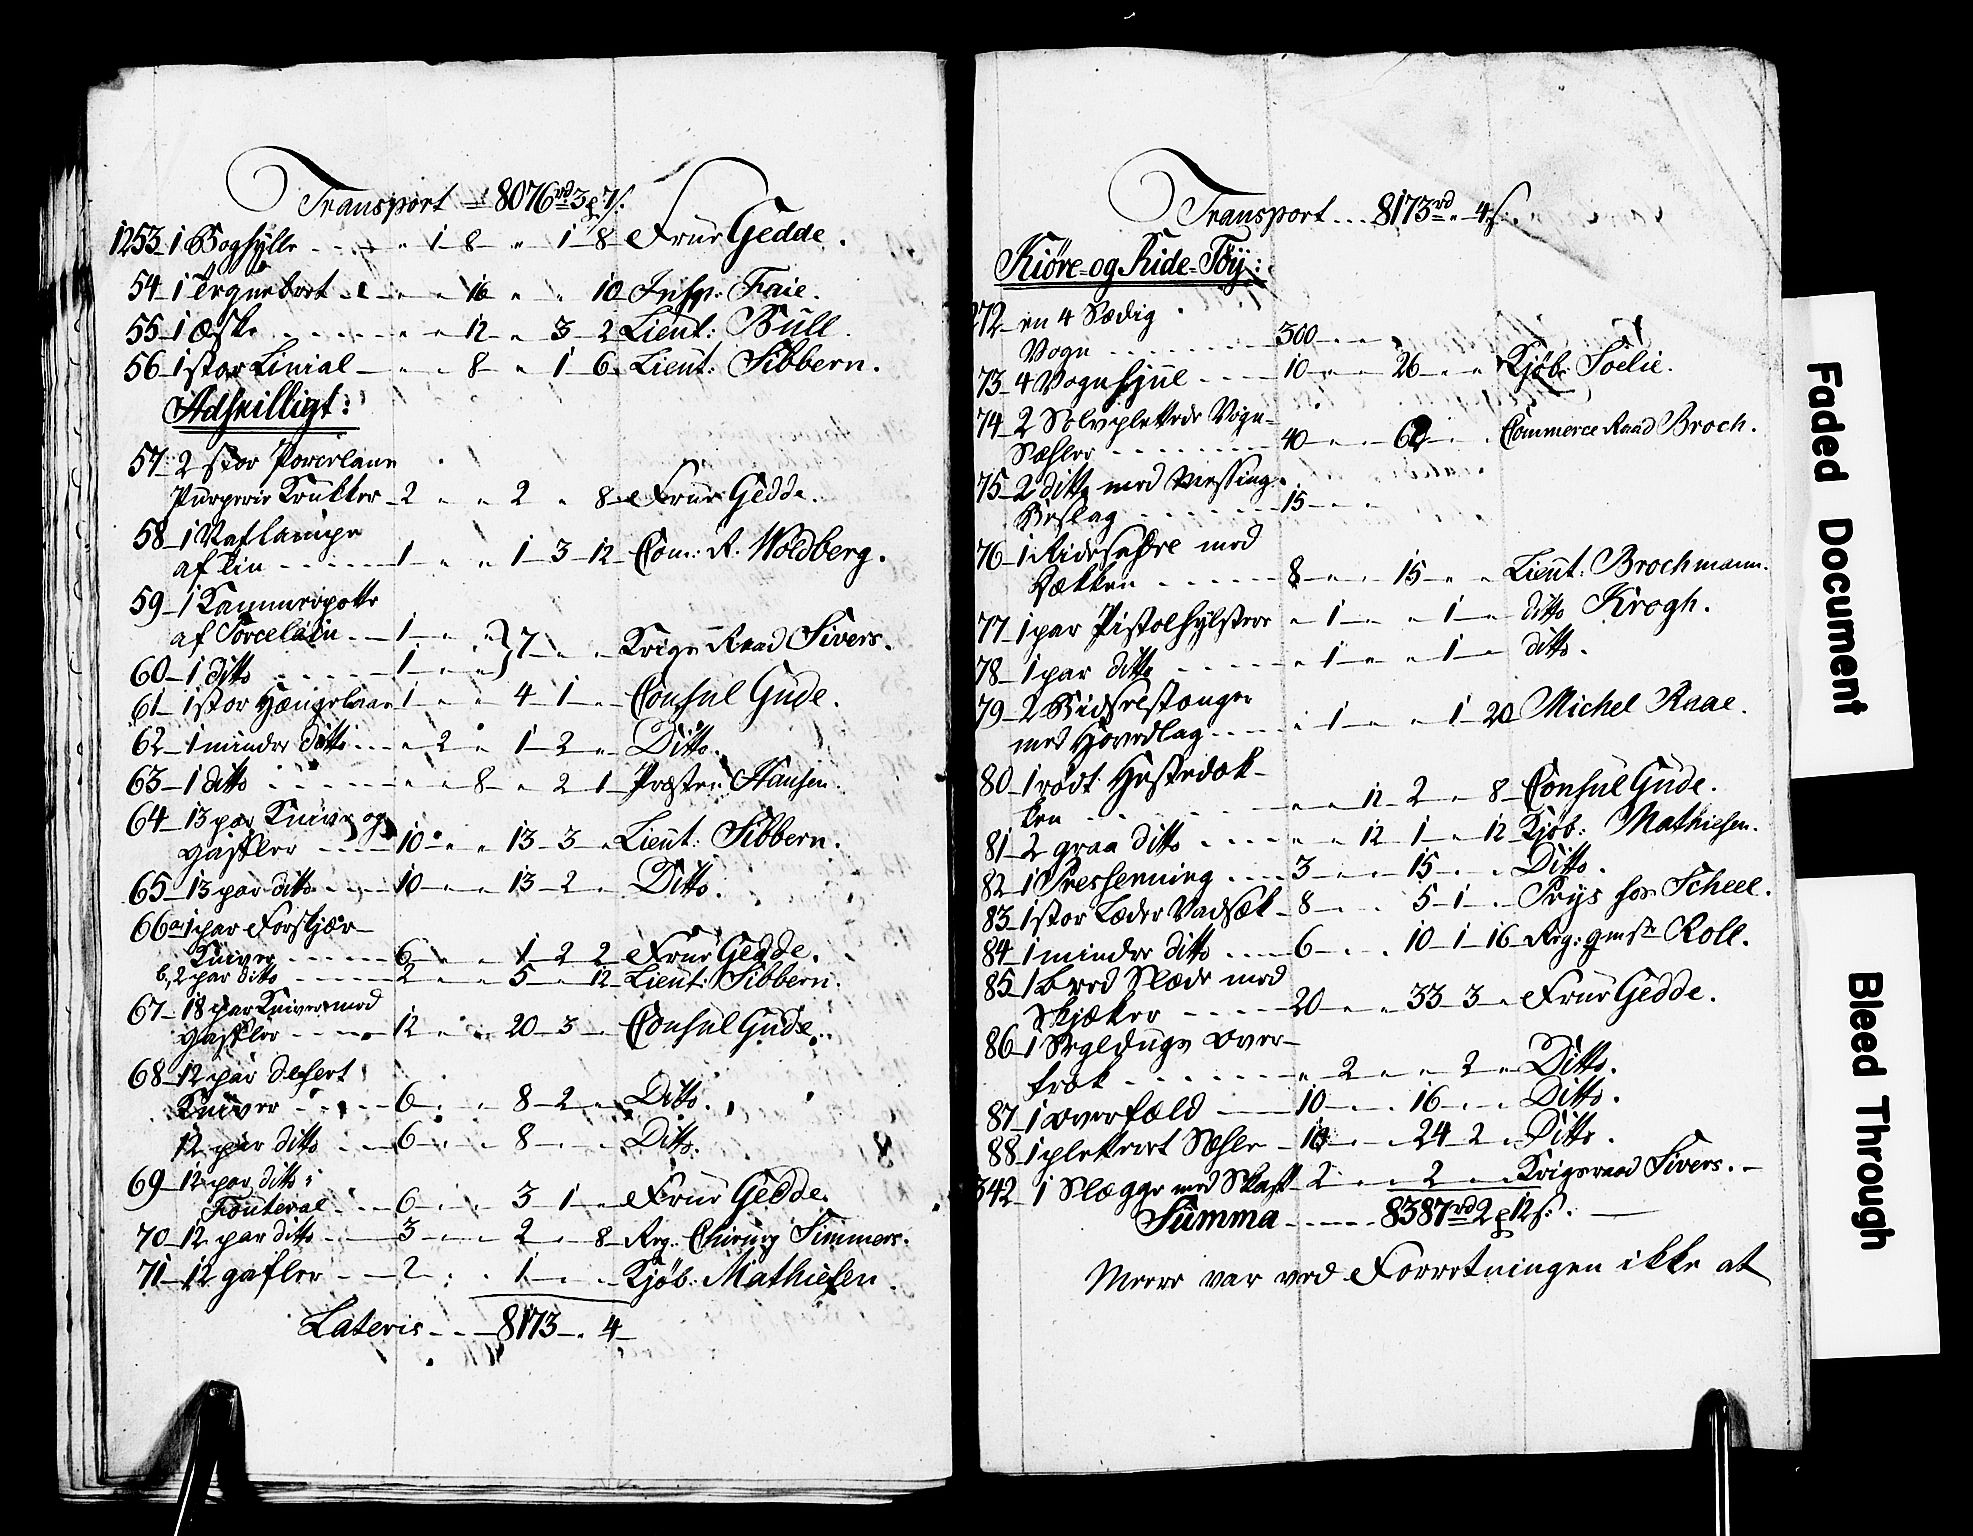 Transport 8076 rd 3 p 7 s.
1253 1 Boghylle - - - " 1 8 " 1 8 Frue Gedde.
54 1 Tegnebort - - - 16 " " 10 Insp: Faie.
55 1 Æske - - - 12 " 3 2 Lieut: Bull.
56 1 stor Linial - - - 8 " 1 6 Lieut: Sibbern.
Adskilligt:
57 2 stor Porcelains
Krukker 2 " " 2 " 8 Frue Gedde.
58 1
af Tin - - - 1 " " 1 3 12 Com: R: Woldberg.
59 1 Kammerpotte
af Porcelain - - 1 " "
60 1 ditto - - - 1 " " } 7 " " Krigs Raad Sivers.
61 1 stor 1 " " 4 1 " Consul Gude.
62 1 mindre ditto - - " 2 " 1 2 " Ditto.
63 1 ditto - - - " " 8 " 2 1 Præsten Hansen.
64 13 par Knive og
Gafler - - - 10 " " 13 3 " Lieut: Sibbern.
65 13 par ditto - - 10 " " 13 2 " Ditto.
66 a 1 par Forskjær-
Kniver - - - 6 " " 1 2 2 Frue Gedde.
b, 2 par ditto - - - 2 " " 5 " 12 Lieut: Sibbern.
67 18 par Kniver med
Gafler - - - 12 " " 20 3 " Consul Gude.
68 12 par desert
Kniver - - - 6 " " 8 2 " Ditto.
12 par ditto - - 6 " " 8 " " Ditto.
69 12 par ditto i
Fouteral - - 6 " " 3 1 " Frue Gedde.
70 12 par ditto - - 3 " " 2 " 8 Reg: Chirurg Simmers.
71 12 gafler - - 2 " " 1 " " Kjøb: Mathiesen.
Lateris - - 8173 " 4
Transport - - 8173 rd " 4 s.
Kiøre- og Ride-Tøy:
272 en 4 Sædig
Vogn - - - 300 " "
73 4 Vognhjul - - - 10 " " 26 " " Kjøb: Soelie.
74 2 Sølvpletterede Vogn-
Sæhler - - - 40 " " 62 " " Commerce Raad Broch.
75 2 ditto med Messing
Beslag - - - 15 " "
76 1 Ridesadel med
Dækken - - - 8 " " 15 " " Lieut: Brochmann.
77 1 par Pistolhylstere " 1 " " 1 " ditto Krogh.
78 1 par ditto - - - " 1 " " 1 " ditto.
79 2 Bidselstænger
med Hovedlag - - " 1 " " 1 20 Michel Raae.
80 1 rødt Hestedæk-
ken - - - " " 12 2 " 8 Consul Gude.
81 2 graa ditto - - - " " 12 1 " 12 Kjøb: Mathiesen.
82 1 Presseniing - - 3 " " 15 " " Ditto.
83 1 stor Læder Vadsæk 8 " " 5 1 " Prys for Scheel.
84 1 mindre ditto - - 6 " " 10 1 16 Reg: Roll.
85 1 bred Slæde med
Skjæker - - - 20 " " 33 3 " Frue Gedde.
86 1 Segldugs Over-
frak - - - " 2 " " 2 " Ditto.
87 1 overfæld - - 10 " " 16 " " Ditto.
88 1 pletteret Sæhle 10 " " 24 2 " Ditto.
342 1 Slægge med Skaft 2 " " 2 " " Krigsraad Sivers.
Summa - - - 8387 rd 2 p 12 s.
Meere var ved Forretningen ikke at
Faded Document
Bleed Through